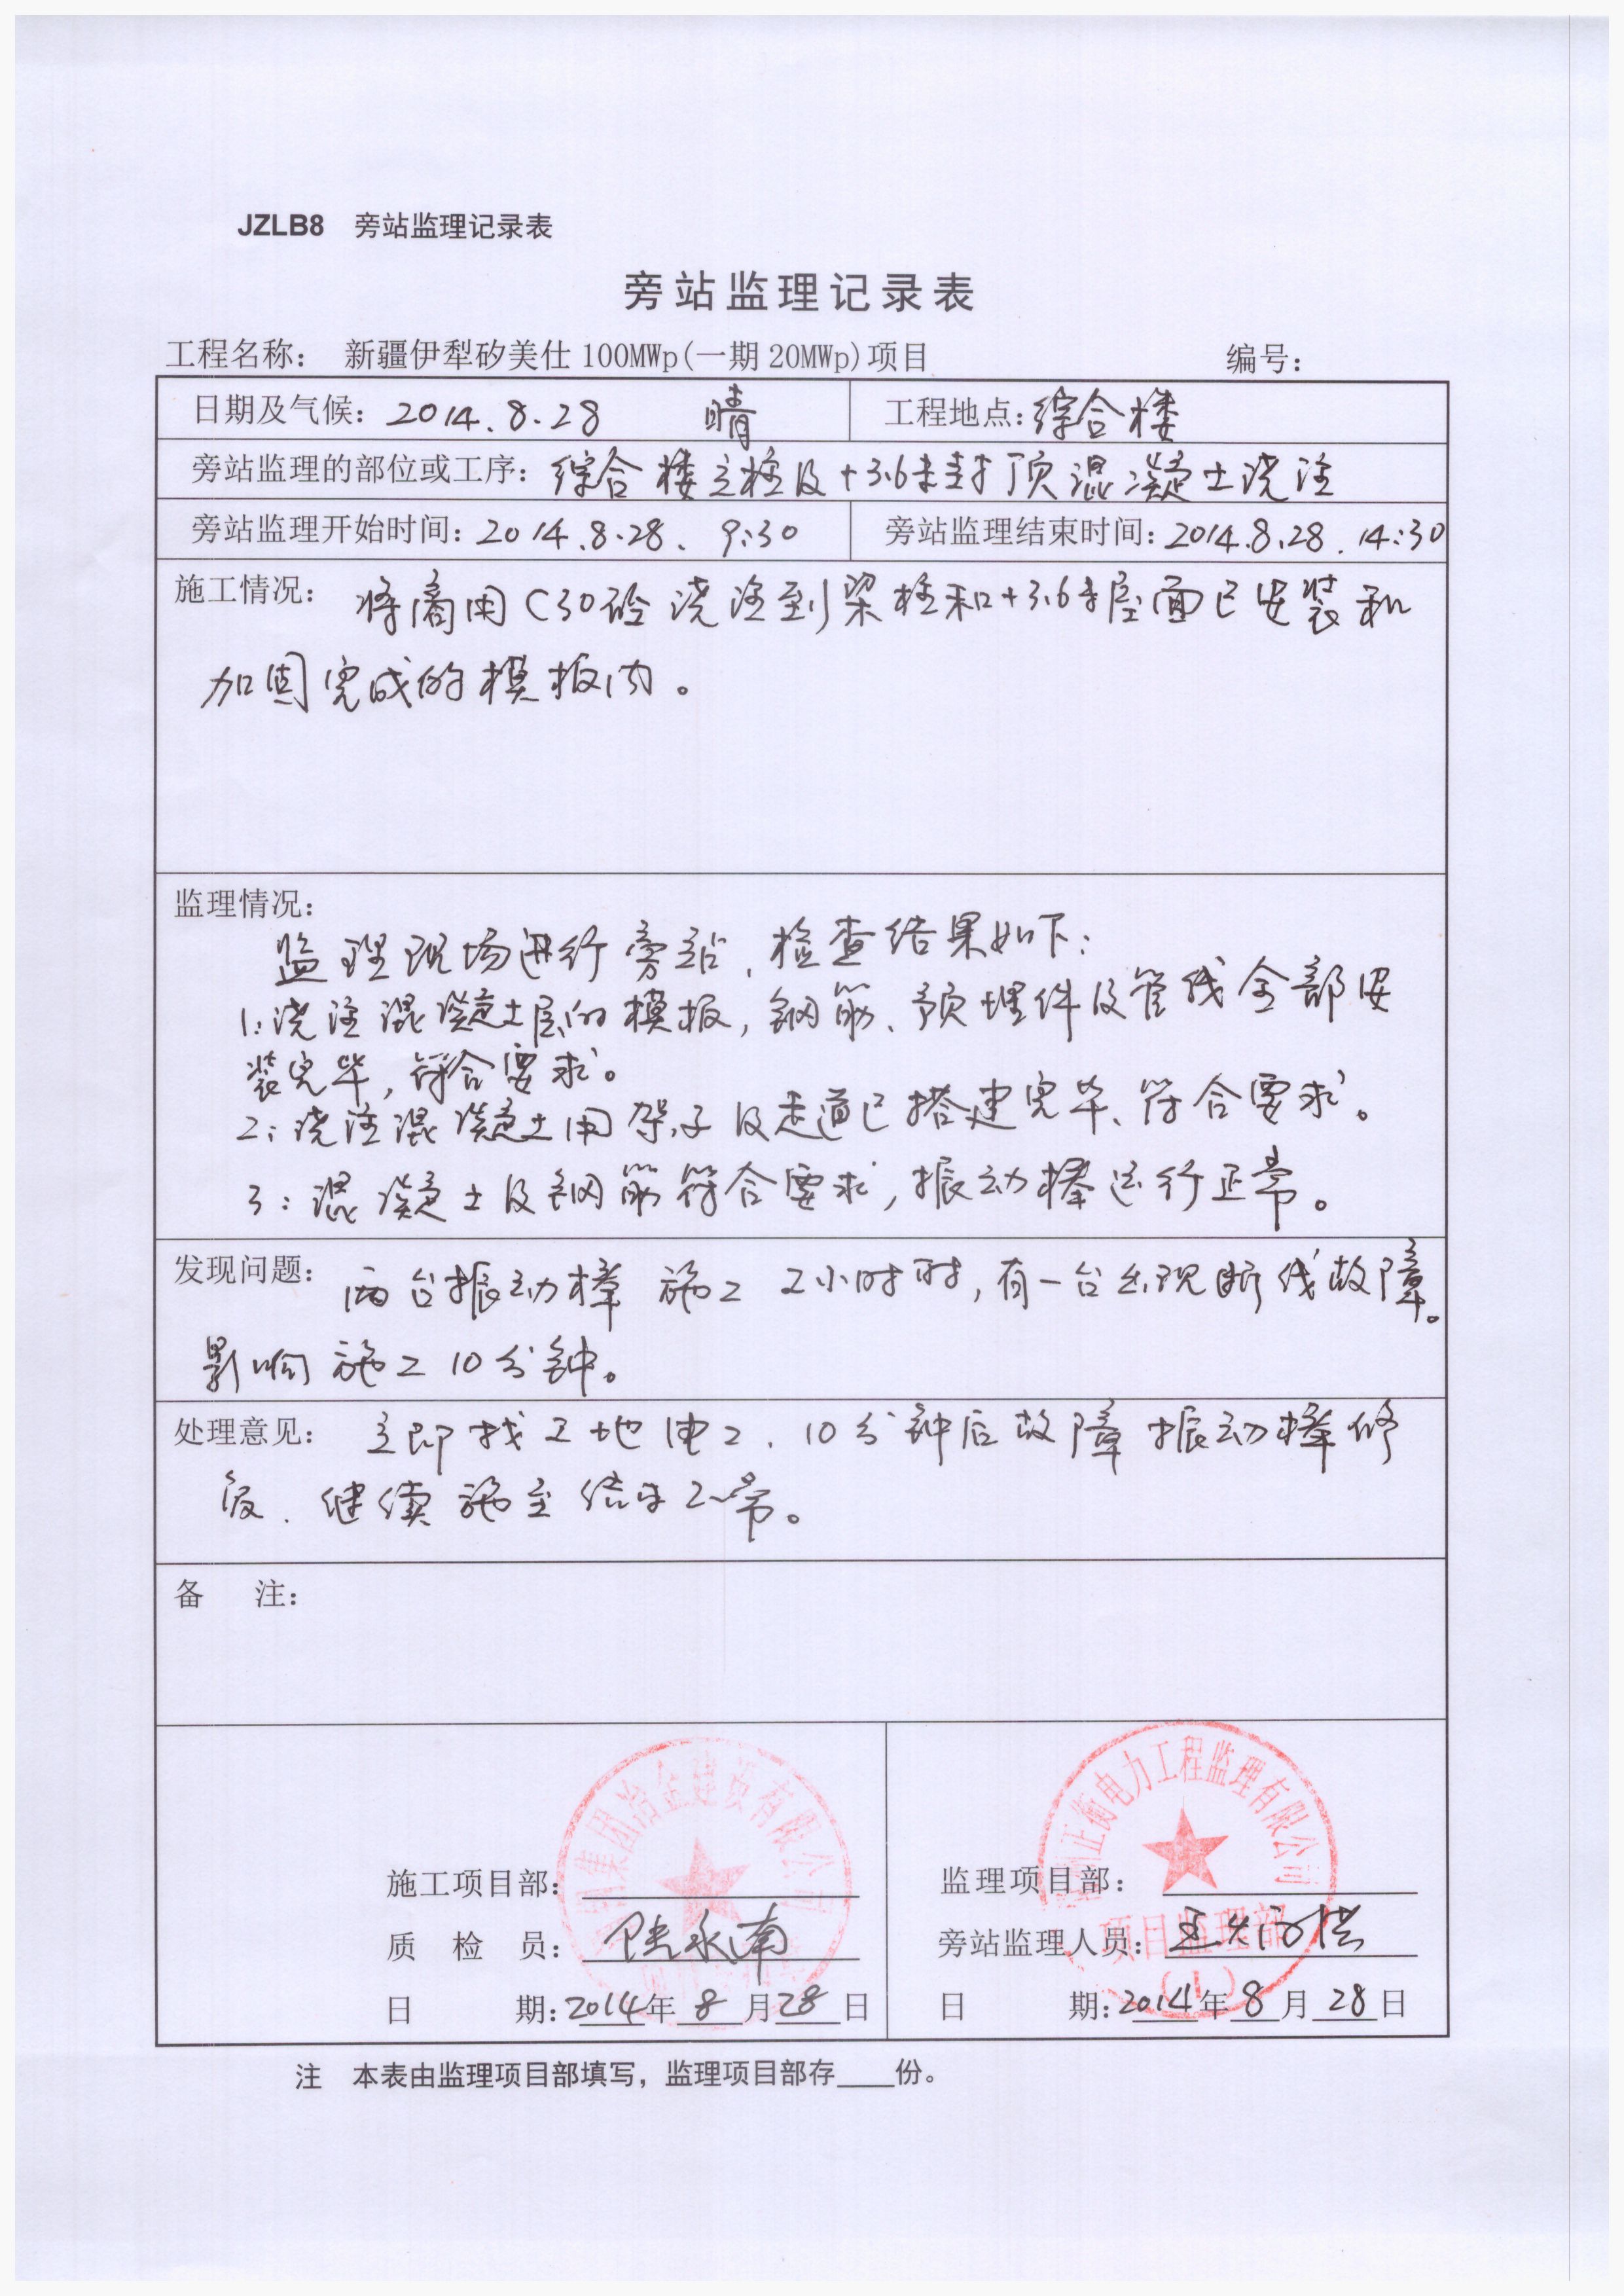 JZLB8 旁站监理记录表
旁站监理记录表
工程名称： 新疆伊犁矽美仕100MWp(一期20MWp)项目 编号：
日期及气候：2014.8.28 晴 工程地点：综合楼
旁站监理的部位或工序：综合楼立柱及+3.6米封顶混凝土浇注
旁站监理开始时间：2014.8.28. 9:30 旁站监理结束时间：2014.8.28.14:30
施工情况： 将商用C30砼浇注到梁柱和+3.6米屋面已安装和
加固完成的模板内。
监理情况：
监理现场进行旁站，检查结果如下：
1:浇注混凝土层的模板，钢筋、预埋件及管线全部安
装完毕，符合要求。
2:浇注混凝土用架子及走道已搭建完毕、符合要求。
3:混凝土及钢筋符合要求，振动棒运行正常。
发现问题： 两台振动棒施工2小时时，有一台出现断线故障。
影响施工10分钟。
处理意见： 立即找工地电工、10分钟后故障振动棒修
复、继续施至结束正常。
备 注：
集团冶金建设有限公司
正衡电力工程监理有限公司
施工项目部： 监理项目部：
项目监理部
(1)
质 检 员：永南 旁站监理人员：王
日 期：2014年8月28日 日 期：2014年8月28日
注 本表由监理项目部填写，监理项目部存____份。